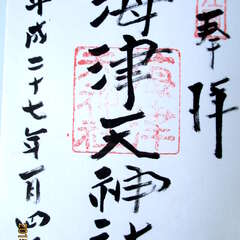 奉拝
海津天神社
平成二十七年一月四